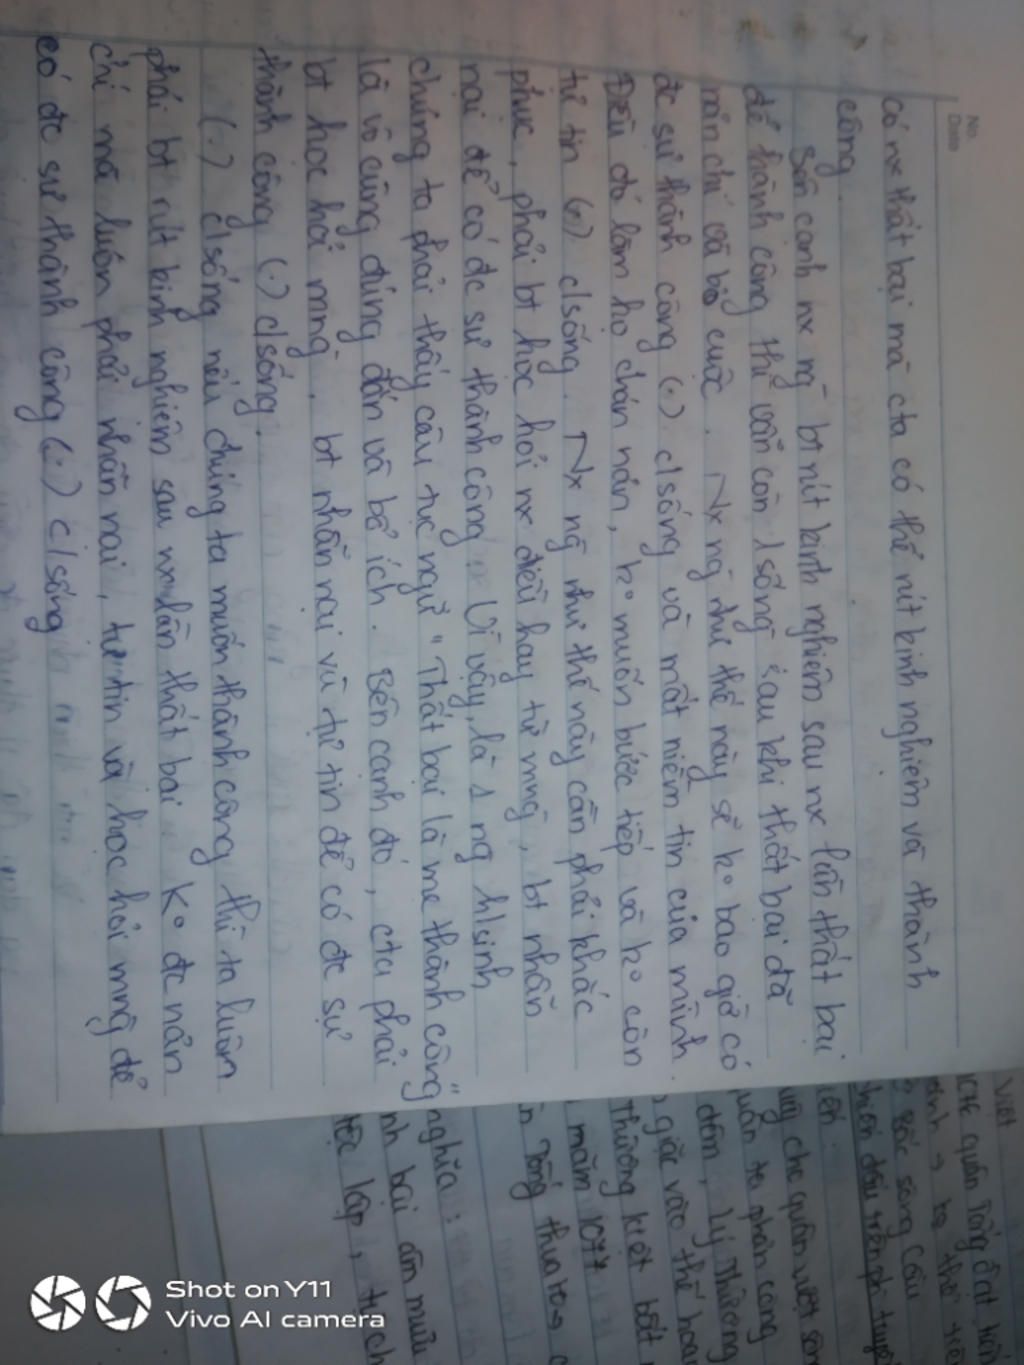 No.
Date
có nx thất bại mà cta có thể rút kinh nghiệm và thành
công.
Bên cạnh nx ng̃ bt rút kinh nghiệm sau nx lần thất bại
để thành công thì vẫn còn 1 số ng̃ sau khi thất bại đã
nản chí và bỏ cuộc. Nx ng̃ như thế này sẽ ko bao giờ có
đc sự thành công (.) c/sống và mất niềm tin của mình.
Điều đó làm họ chán nản, ko muốn bước tiếp và ko còn
tự tin (.) c/sống. Nx ng̃ như thế này cần phải khắc
phục, phải bt học hỏi nx điều hay từ mng̃, bt nhẫn
nại để có đc sự thành công. Vì vậy, là 1 ng h/sinh
chúng ta phải thấy câu tục ngữ "Thất bại là mẹ thành công"
là vô cùng đúng đắn và bổ ích. Bên cạnh đó, cta phải
bt học hỏi mng̃, bt nhẫn nại và tự tin để có đc sự
thành công (.) c/sống.
(.) c/sống nếu chúng ta muốn thành công thì ta luôn
phải bt rút kinh nghiệm sau nx lần thất bại. Ko đc nản
chí mà luôn phải nhẫn nại, tự tin và học hỏi mng̃ để
có đc sự thành công (.) c/sống
Việt
1076 quân Tống ồ ạt
bắc sông Cầu
chiến đấu trên phi tuyến
cho quân
quân ta phản công
đêm, Lý Thường
giặc vào thế
Thường Kiệt
năm 1077
Tống thua
nghĩa:
bại âm mưu
độc lập,
Shot on Y11
Vivo AI camera